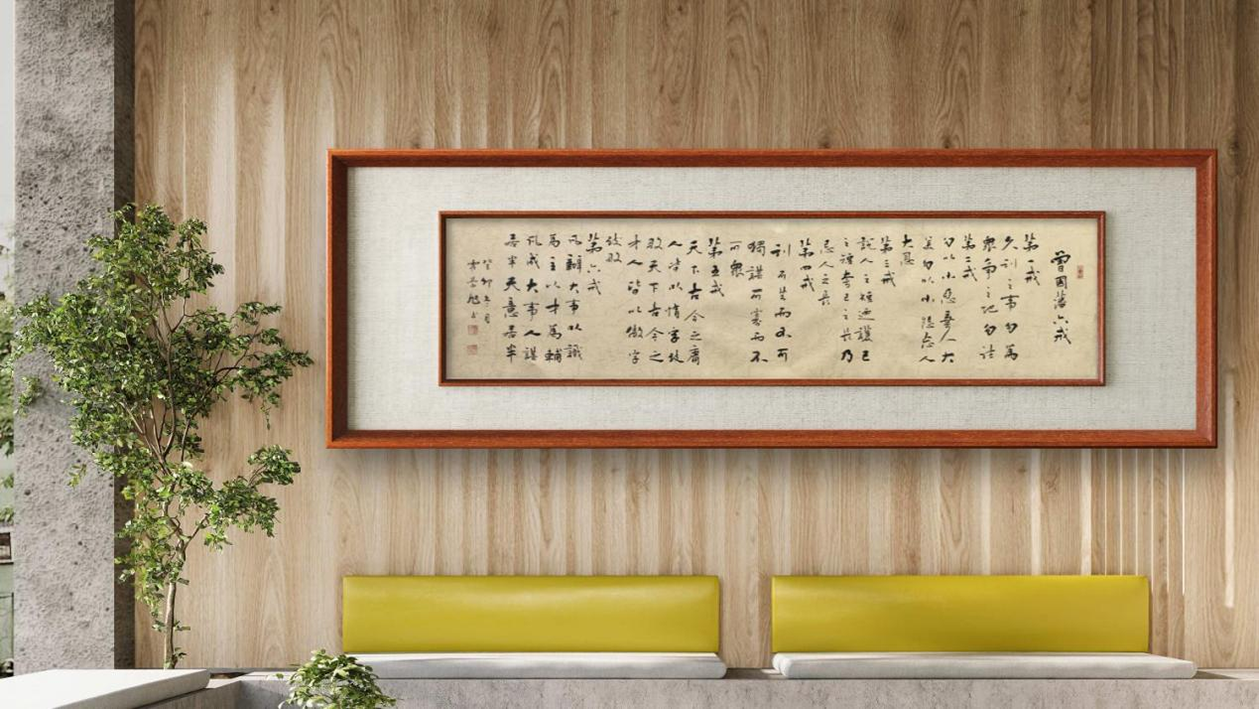 曾國藩六戒
第一戒
久利之事勿為
衆争之地勿往
第二戒
勿以小惡棄人大
美勿以小怨忘人
大恩
第三戒
說人之短迺護己
之短夸己之長乃
忌人之長
第四戒
利可共而不可
獨謀可寡而不
可衆
第五戒
天下古今之庸
人皆以惰字致
敗天下古今之
才人皆以傲字
致敗
第六戒
凡辦大事以識
為主以才為輔
凡成大事人謀
居半天意居半
癸卯年月